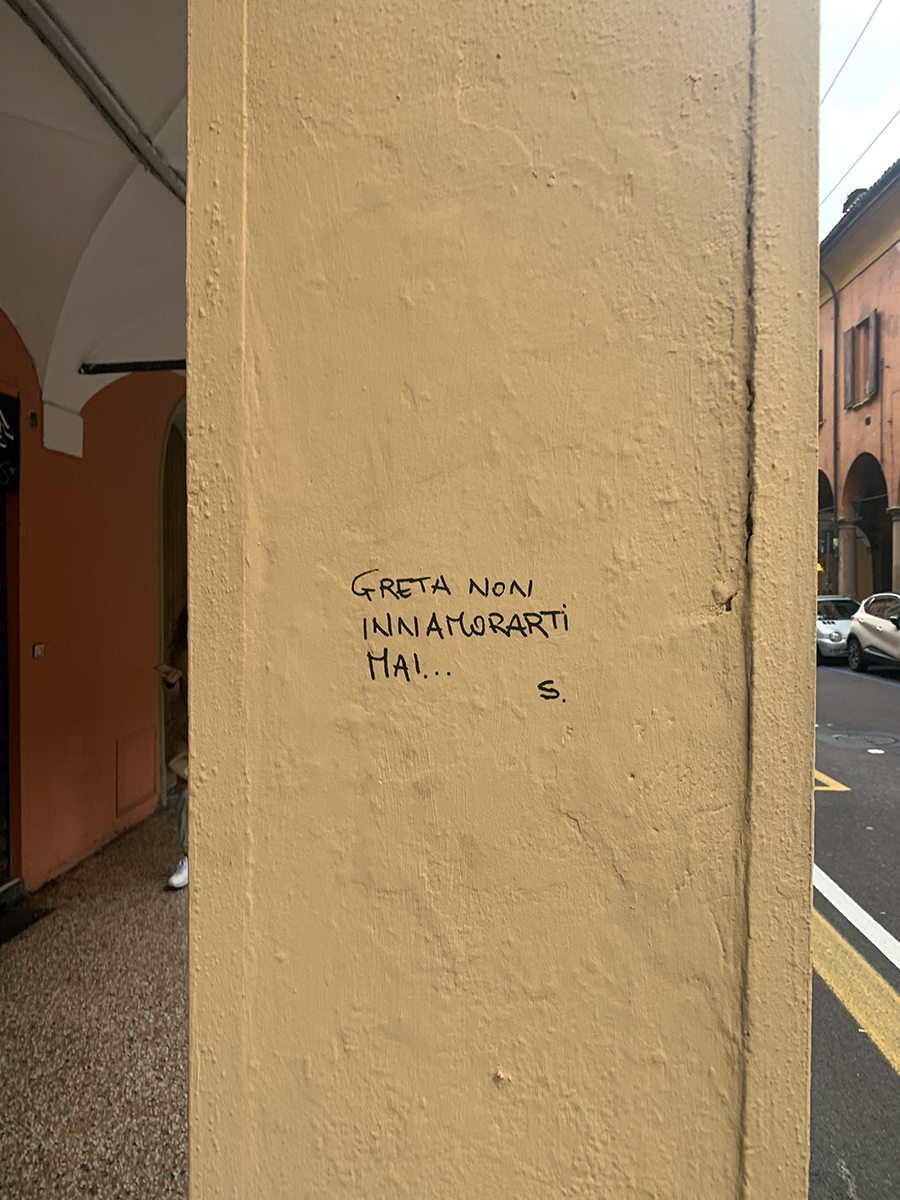 GRETA NON
INNAMORARTi
MAI...
S.